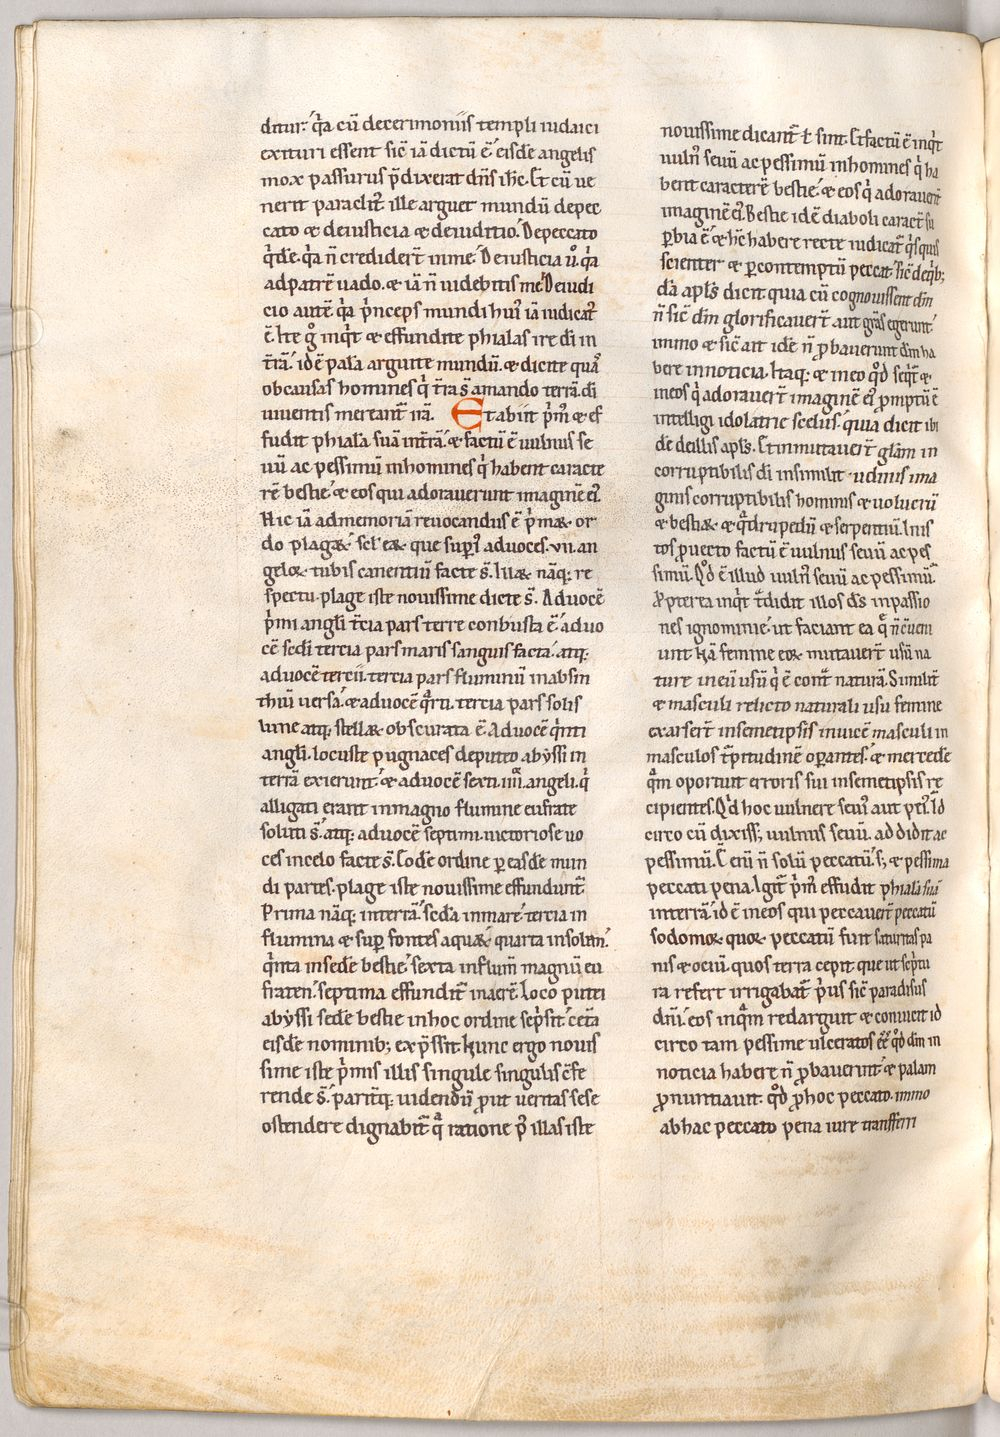 ditur. q̓a cū decerimoniis templi iudaici
exituri essent sic̄ iā dictū ē. eisdē angelis
mox passurus p̄dixerat dn̄s ih̄c. Et cū ue
nerit paraclit᷒ ille arguet mundū depec
cato & deiusticia & deiuditio. Depeccato
q̓dē. q̓a n̄ credidert̄ inme. Deiusticia u̓. q̓a
adpatrē uado. & iā n̄ uidebitis me. Deiudi
cio autē q̓a p̓nceps mundi hui᷒ iā iudicat᷒
ē. Ite g̊ inq̓t & effundite phialas ire dī in
tr̄ā. id ē palā arguite mundū. & dicite quā
obcausas homines q̓ tr̄ā s̄ amando terrā dī
uiuentis mereant᷒ irā. Et abiit p̓m᷒ & ef
fudit phialā suā intr̄ā. & factū ē uulnus se
uū ac pessimū inhomines q̓ habent caracte
rē bestie. & eos qui adorauerunt imaginē ei᷒.
Hic iā admemoriā reuocandus ē p̓maꝝ or
do plagaꝝ. scl̓ eaꝝ que supi᷒ aduoces .vii. an
geloꝝ tubis canentiū facte s̄. Illaꝝ nāq; re
spectu. plage iste nouissime dicte s̄. Aduocē
p̓mi angl̄i tc̄ia pars terre conbusta ē. aduo
cē sc̄di tercia pars maris sanguis facta. atq;
aduocē tercii. tercia pars fluminū inabsin
thiū uersa. & aduocē q̓rti. tercia pars solis
lune atq; stellaꝝ obscurata ē. Aduocē q̓nti
angl̄i. locuste pugnaces deputeo abyssi in
terrā exierunt. & aduocē sexti .iiii. angeli. q̓
alligati erant inmagno flumine eufrate
soluti s̄. atq; aduocē septimi. uictoriose uo
ces incelo facte s̄. Eodē ordine ꝑ easdē mun
di partes. plage iste nouissime effundunt᷒.
Prima nāq; interrā. sc̄da inmare. tercia in
flumina & suꝑ fontes aquaꝝ. quarta insolem.
q̓nta insedē bestie. sexta influm̄ magnū eu
fraten. septima effundit᷒ inaerē. Loco putei
abyssi sedē bestie inhoc ordine sep̓sit. cet̄a
eisdē nominib; exp̄ssit. Hunc ergo nouis
sime iste p̓mis illis singule singulis c̄fe
rende s̄. pariťq; uidendū ꝓut ueritas sese
ostendere dignabit᷒. q̓ ratione p᷒ illas iste
nouissime dicant᷒ ł sint. Et factū ē inq̓t
uuln᷒ seuū ac pessimū inhomines q̓ ha
bent caracterē bestie. & eos q̓ adorauert̄
imaginē ei᷒. Bestie idē diaboli caract̄ su
ꝑbia ē. & h̄c habere recte iudicat᷒ q̓sq̓s
scienter & ꝑ contemptū peccat. Hic̄ deq̓b;
dā apl̄s dicit. quia cū cognouissent dm̄
n̄ sic̄ dm̄ glorificauert̄ aut gr̄as egerunt.
immo & sic̄ ait idē n̄ ꝓbauerunt dm̄ ha
bere innoticia. Itaq; & ineo q̊d seq̓t᷒ &
ineos q̓ adorauert̄ imaginē ei᷒ ꝓmptū ē
intelligi idolatrie scelus. quia dicit ibi
dē deillis apl̄s. Et inmutauert̄ gl̄am in
corruptibilis dī insimilit udinis ima
ginis corruptibilis hominis & uolucrū
& bestiaꝝ & q̓drupedū & serpentiū. Inis
tos ꝓuecto factū ē uulnus seuū ac pes
simū. Q̊d ē illud uuln᷒ seuū ac pessimū.
Ꝓpterea inq̓t t̄didit illos ds̄ inpassio
nes ignominie. ut faciant ea q̄ n̄ cueni
unt. Nā femine eoꝝ mutauert̄ usū na
ture ineū usū q̓ ē cont̄ naturā. Similit̄
& masculi relicto naturali usu femine
exarsert̄ insemetipsis inuicē masculi in
masculos t᷒pitudinē oꝑantes. & mercedē
q̄m oportuit erroris sui insemetipsis re
cipientes. Q̓d hoc uulnere seui᷒ aut pei᷒. Id
circo cū dixiss; uulnus seuū. addidit ac
pessimū. Ē enī n̄ solū peccatū. s; & pessima
peccati pena. Igit᷒ p̓m᷒ effudit phialā suā
interrā. id ē ineos qui peccauert̄ peccatū
sodomoꝝ. quoꝝ peccatū fuit saturitas pa
nis & ociū. quos terra cepit que ut sc̓ptu
ra refert irrigabat᷒ p̓us sic̄ paradisus
dn̄i. eos inq̄m redarguit & conuicit id
circo tam pessime ulceratos ee᷒. q̊d dm̄ in
noticia habere n̄ ꝓbauerint. & palam
ꝓnuntiauit. q̊d ꝓhoc peccato. immo
abhac peccato pena iure transferri